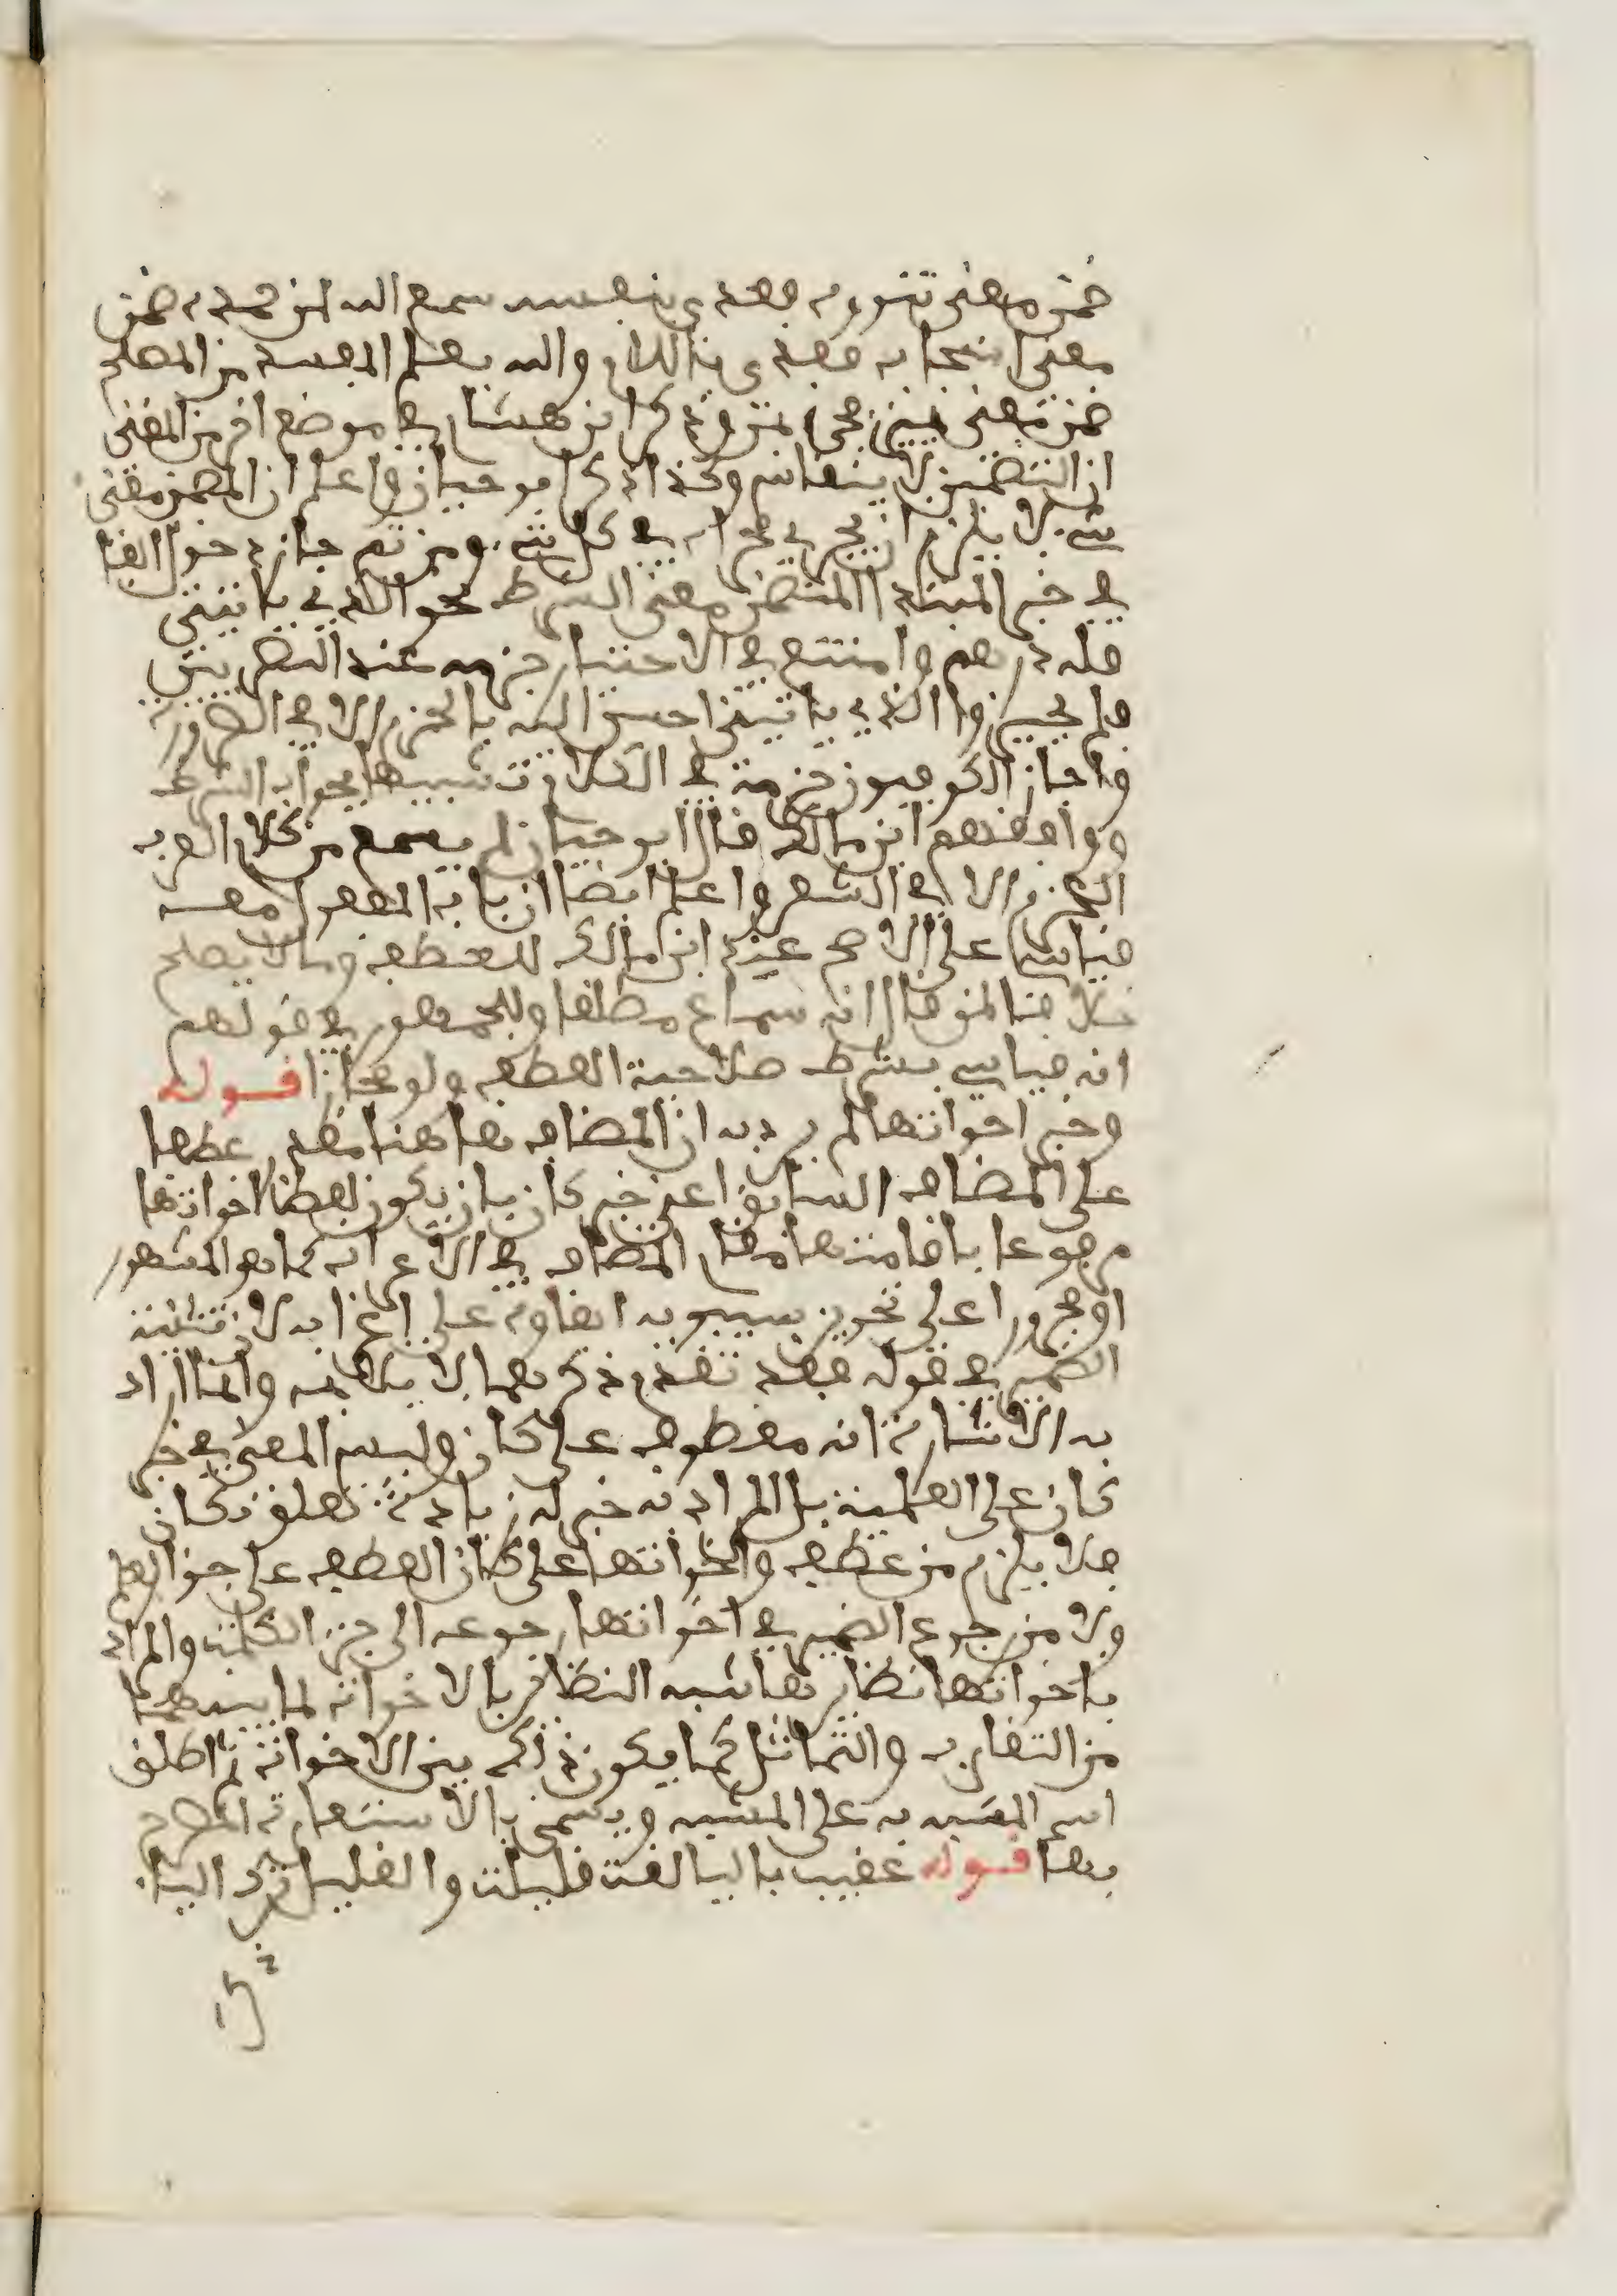 ضمن معنى تنووه فعدي بنفسه سمع الله لمن حمده ضمن
معنى استجاب فعدي باللام والله يعلم المفسد من المصلح
ضمن معنى يميز وذكر ابن هشام في موضع اخر من المغنى
ان التضمين لا ينقاس وكذا ذكر ابو حيان واعلم ان المضمن معنى
شيء لا يلزم ان يجري مجراه في كل شيء ومن ثم جاز دخول الفا
في خبر المبتدا المتضمن معنى الشرط نحو الذي ياتيني
فله درهم وامتنع في الاختيار جزمه عند البصريين
فلم يجيزوا الذي ياتيني احسن اليه بالجزم الا في الضرورة
واجاز الكوفيون جزمه في الكلام تشبيها بجواب الشرط
ووافقهم ابن مالك قال ابو حيان لم يسمع من كلام العرب
الجزم الا في الشعر واعلم ايضا ان باب المفعول معه
قياسي على الاصح عند ابن مالك للعطف وما لا يصلح
خلافا لمن قال انه سماع مطلقا وللجمهور في قولهم
انه قياسي بشرط صلاحية العطف ولو مجازا قوله
وخبر اخواتها لم يرد به ان المضاف هاهنا مقدر عطفا
على المضاف السابق اعني خبر كان بان يكون لفظ اخواتها
مرفوعا باقامتها مقام المضاف في الاعراب كما هو المشهور
او مجرورا على تجويز سيبويه ابقاوه على اعرابه لان تثنية
الضمير في قوله فقد تقدم ذكرهما لا يلائمه وانما اراد
به الاشارة انه معطوف على كان وليس المعنى في خبر
كان على العلمية بل المراد به خبر له زيادة تعلق بكان
فلا يلزم من عطف واخواتها على كان العطف على جزء العلم
ولا من رجوع الضمير في اخواتها رجوعه الى جزء الكلمة والمراد
باخواتها نظايرها شبه النظائر بالاخوات لما بينهما
من التقارب والتماثل كما يكون ذلك بين الاخوات ثم اطلق
اسم المشبه به على المشبه ويسمى بالاستعارة المصرح
بها قوله عقيب باليا لغة قليلة والقليل ترك اليا